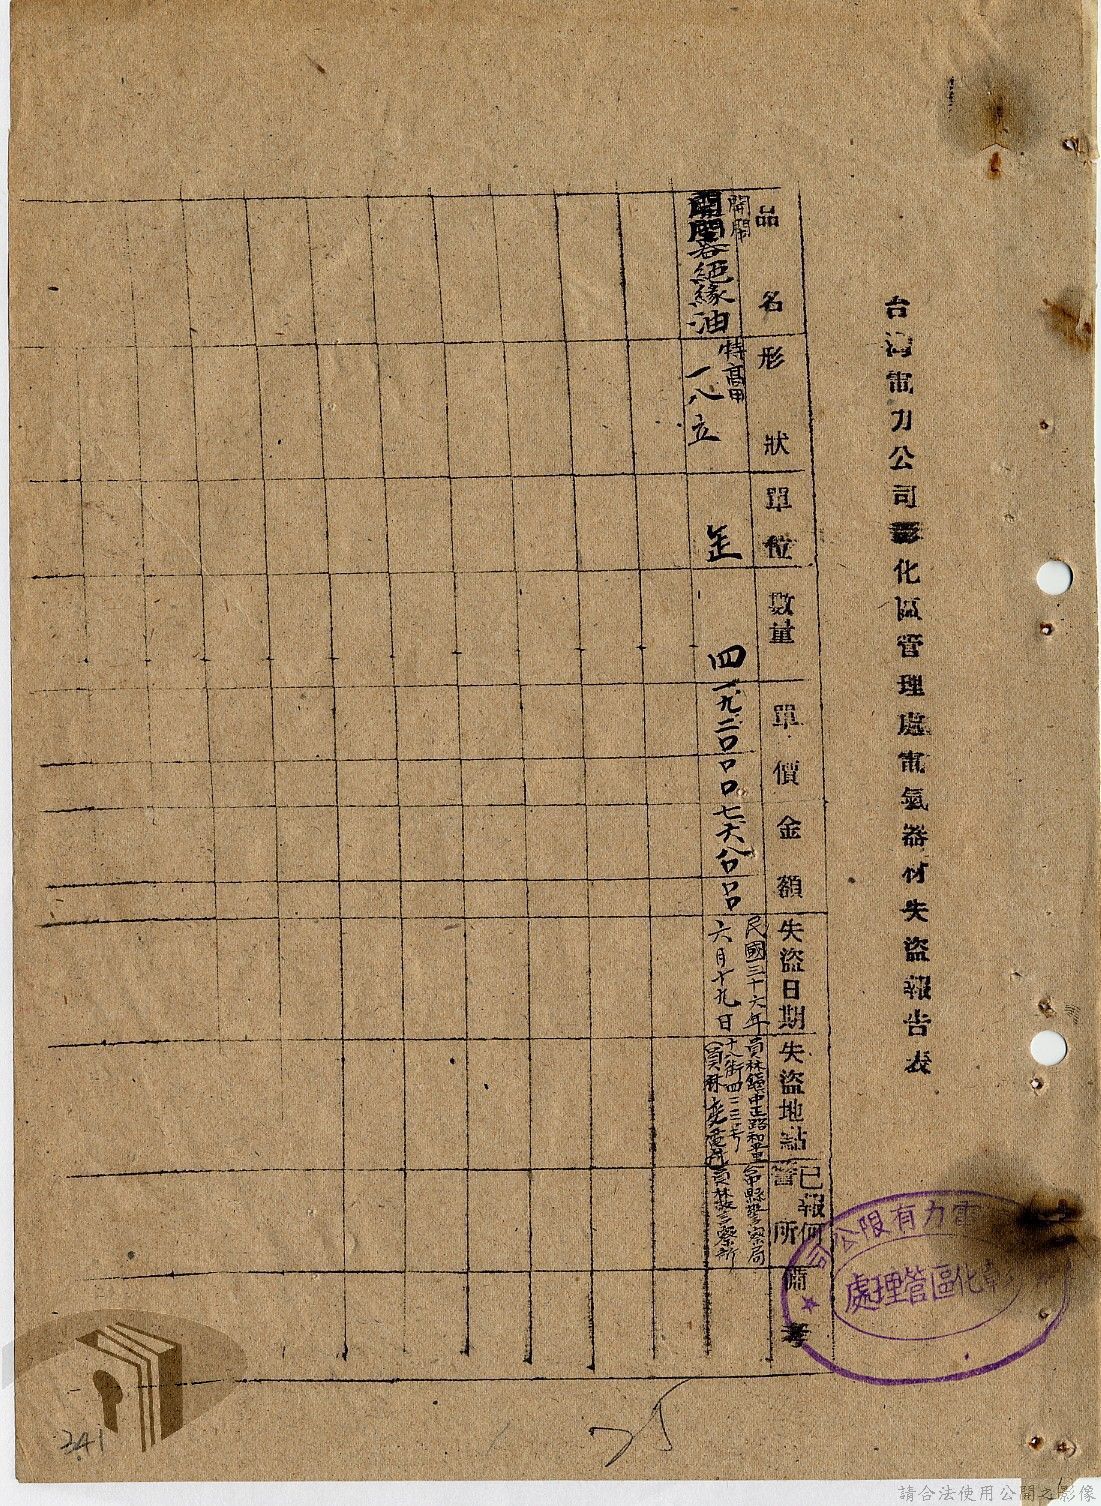 台灣電力公司彰化區管理處電氣器材失盜報告表
品名
形狀
單位
數量
單價
金額
失盜日期
失盜地點
已報何
警所
備考
開閉
開閉器絕緣油
特高甲
一八立
四
一九二〇〇〇
七六八〇〇〇
民國三十六年
六月十九日
員林鎮中正路和平里
十八街四二三号
(員林變電所
台中縣警察局
員林警察所
電力有限公司
彰化區管理處
341
25
請合法使用公開之影像